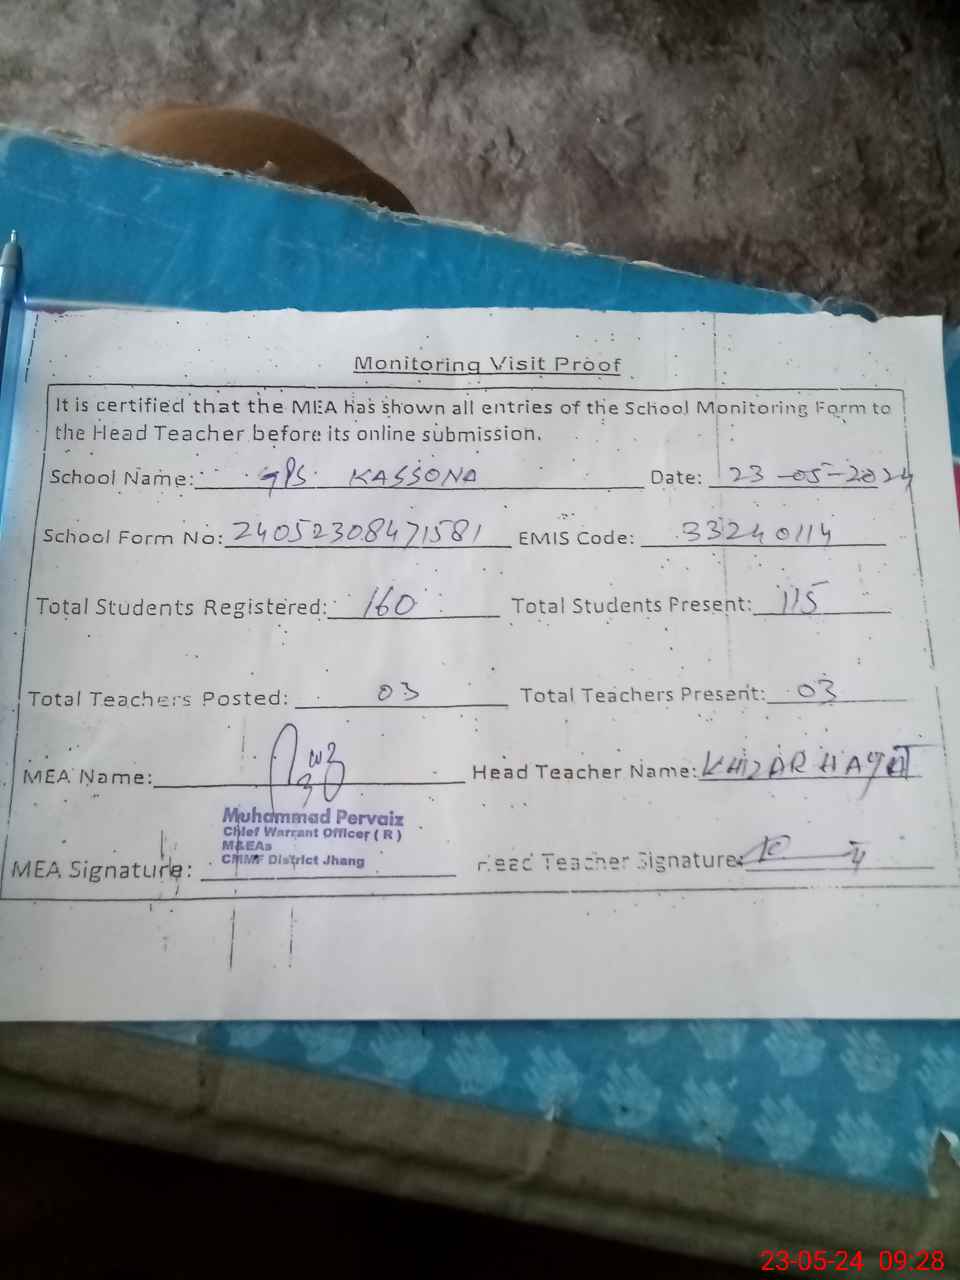 Monitoring Visit Proof
It is certified that the MEA has shown all entries of the School Monitoring Form to
the Head Teacher before its online submission.
School Name: GPS KASSONA Date: 23-05-2024
School Form No: 24052308471581 EMIS Code: 33240114
Total Students Registered: 160 Total Students Present: 115
Total Teachers Posted: 03 Total Teachers Present: 03
MEA Name: Head Teacher Name: KHIZAR HAYAT
Muhammad Pervaiz
Chief Warrant Officer ( R )
M&EAs
CMMF District Jhang
MEA Signature: Head Teacher Signature:
23-05-24 09:28